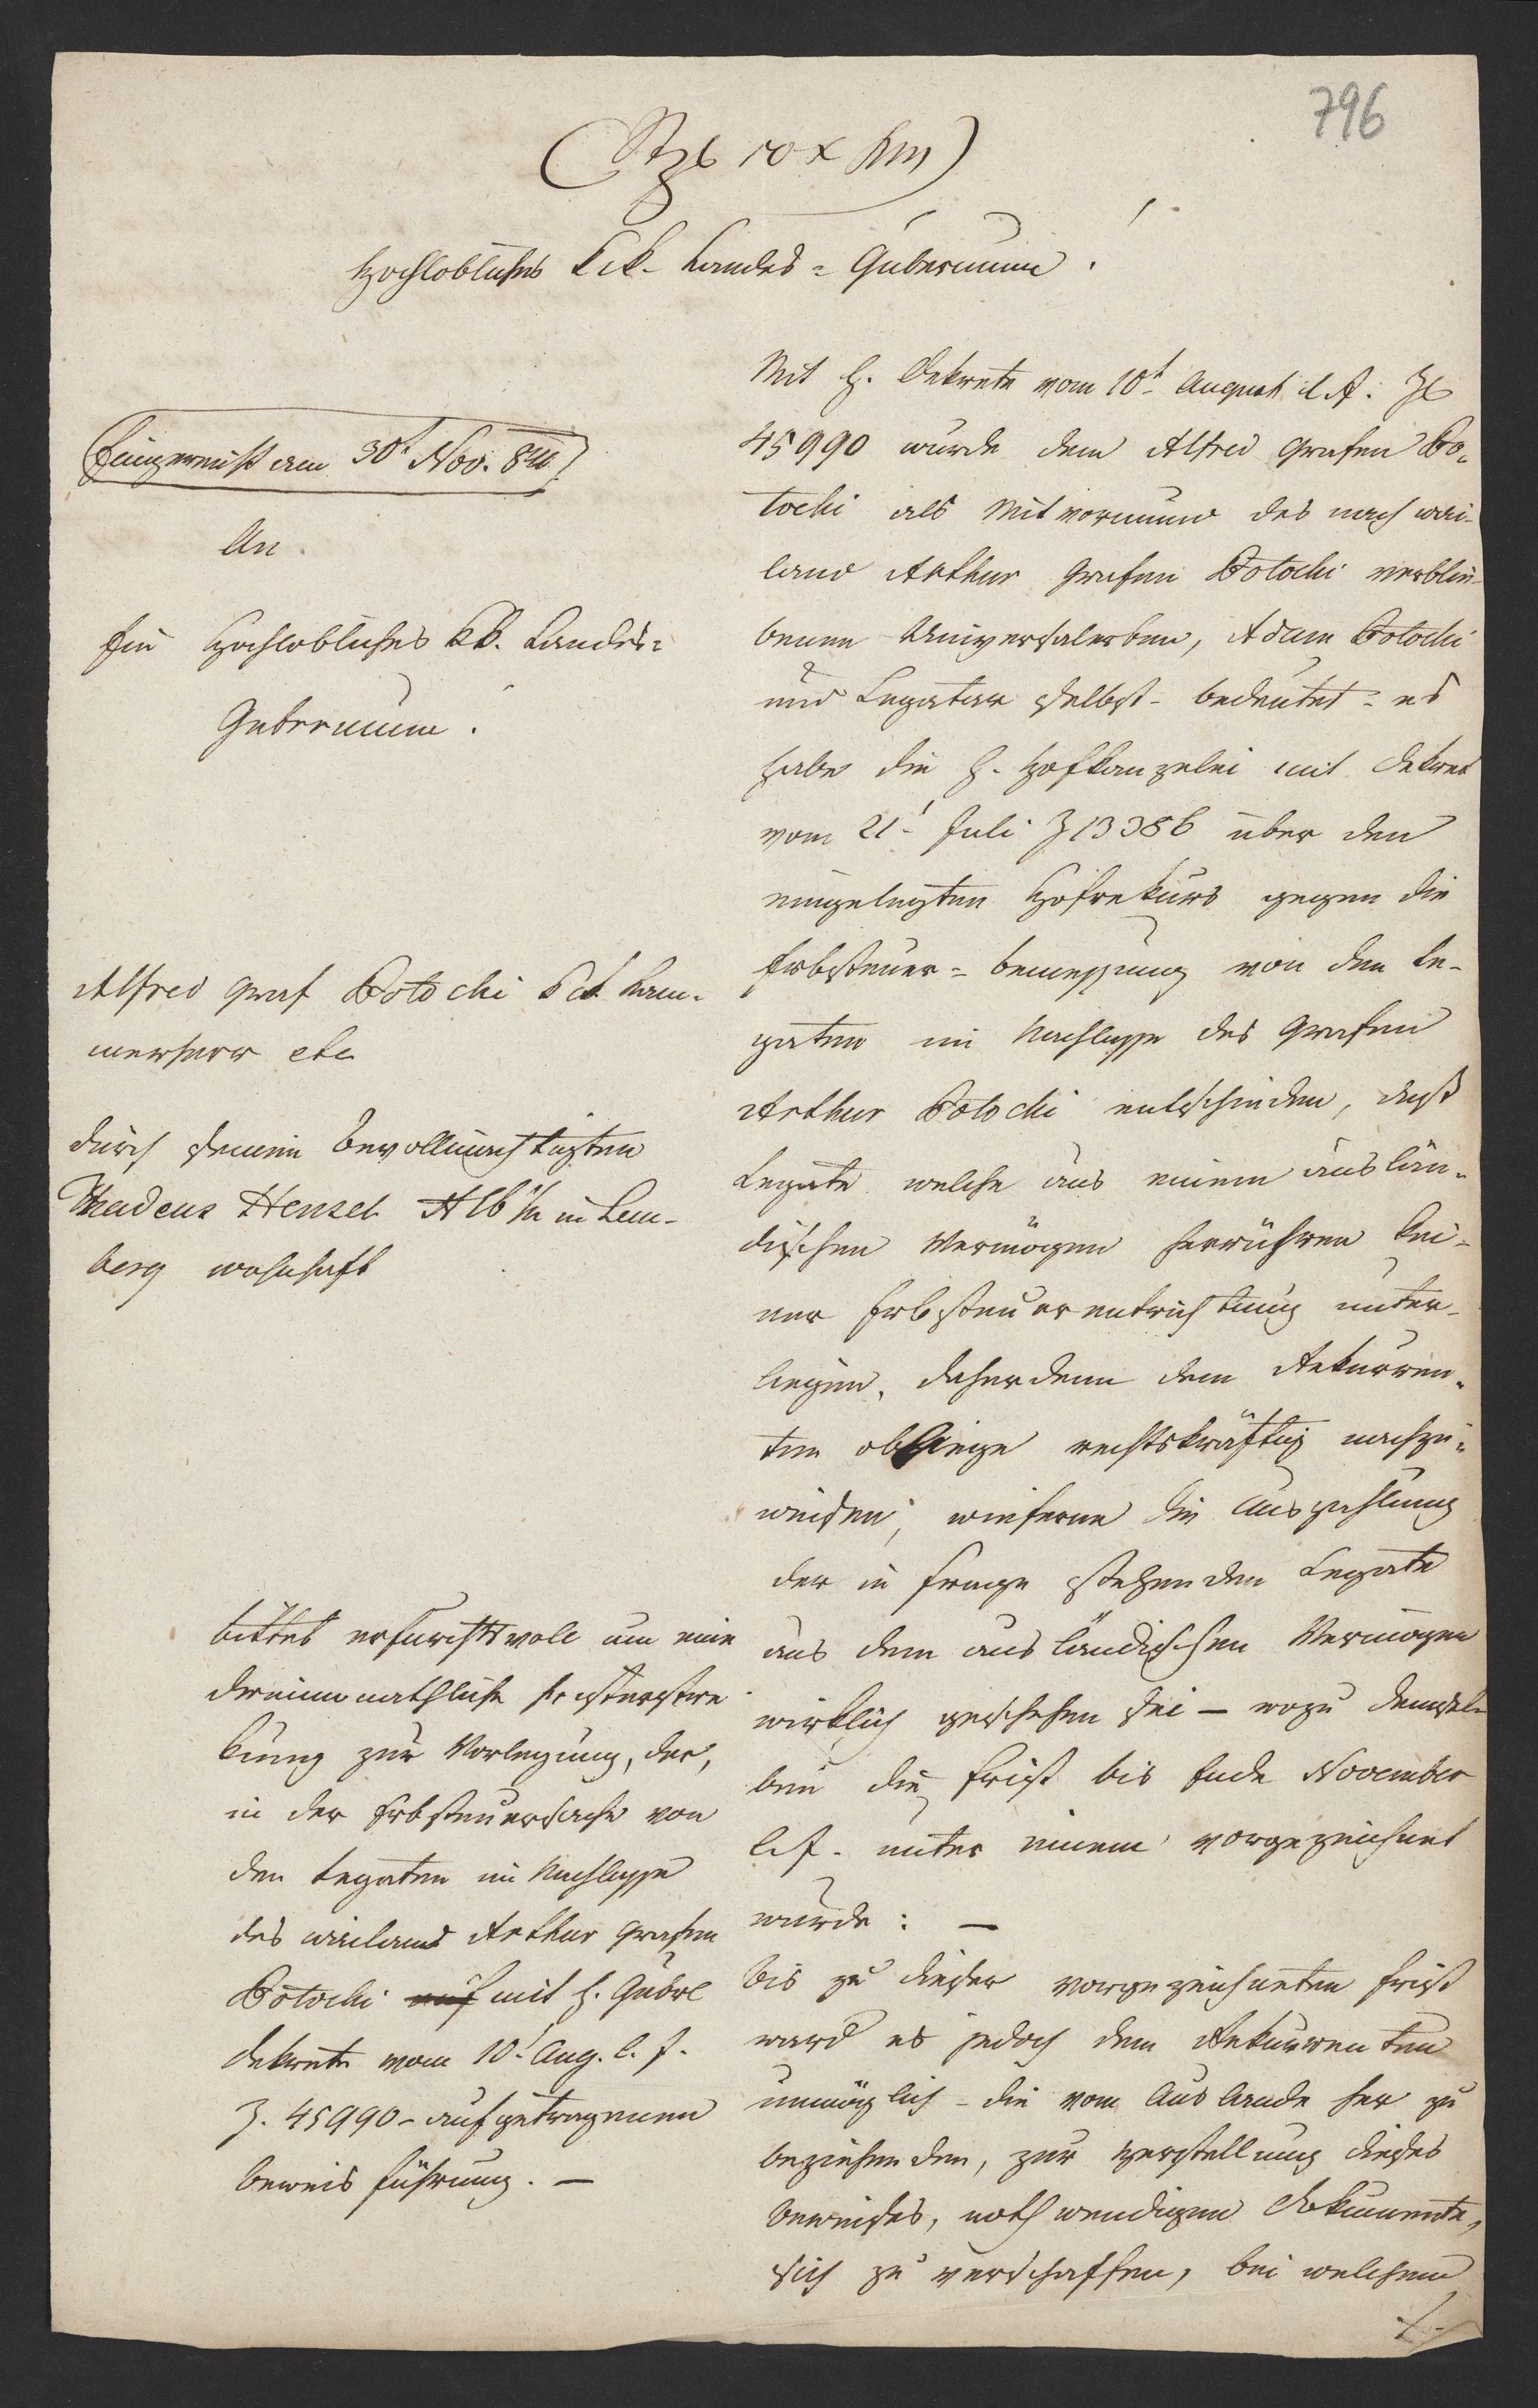 796
(Stpl 10 x Km)
Hochlöbliches k.k. Landes=Gubernium!
Eingereicht am 30t. Nov. 840
An
Ein Hochlöbliches kk. Landes=
Gubernium.
Alfred Graf Potocki k.k. Kam-
merherr etc
durch seinen Bevollmächtigten
Thadeus Hensel in Lem-
berg wohnhaft
bittet erfurchtsvoll um eine
dreimonathliche Fristerstre
kung zur Vorlegung, der,
in der Erbsteuersache von
den Legaten im Nachlasse
des weiland Arthur Grafen
Potocki mit h. Gubrl
Dekrete vom 10t Aug. l. J.
Z. 45990 - aufgetragenen
Beweisführung. —
Mit h. Dekrete vom 10t August l. J. Zl
45990 wurde dem Alfred Grafen Po-
tocki als Mitvormund des nach wei-
land Arthur Grafen Potocki verblie-
benen Universalerben, Adam Potocki
und Legatar selbst - bedeutet = es
habe die h. Hofkanzelei mit Dekret
vom 21t Juli Z 13386 über den
eingelegten Hofrekurs gegen die
Erbsteuer=bemessung von den Le-
gaten im Nachlasse des Grafen
Arthur Potocki entschieden, daß
Legate welche aus einem auslän-
dischen Vermögen herrühren kei-
ner Erbsteuerentrichtung unter-
liegen, daherdenn dem Rekurren-
ten obliege rechtskräftig nachzu-
weisen, wieferne die Auszahlung
der in Frage stehenden Legate
aus dem ausländischen Vermögen
wirklich geschehen sei — wozu demsel-
ben die Frist bis Ende November
l. J. unter einem vorgezeichnet
wurde: —
Bis zu dieser vorgezeichneten Frist
ward es jedoch dem Rekurrenten
unmöglich - die vom Auslande her zu
beziehenden, zur Herstellung dieses
Beweises, nothwendigen Dokumente,
sich zu verschaffen, bei welchem